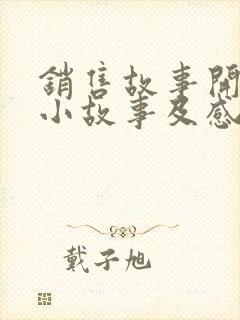 銷售故事開
小故事及感
戴子旭